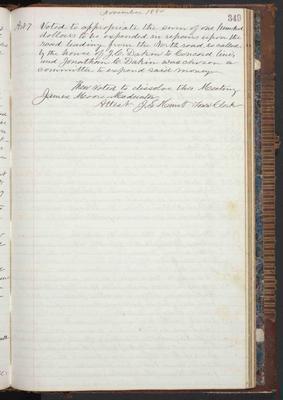 November 1880
349
Art 7 Voted to appropriate the sum of one hundred
dollars to be expended in repairs upon the
road leading from the North road so called
by the house of J. C. Dakin to Concord line
and Jonathan C Dakin was chosen a
committee to expend said money
Then voted to dissolve this Meeting
James Moore Moderator
Attest J. S. Hunt Town Clerk